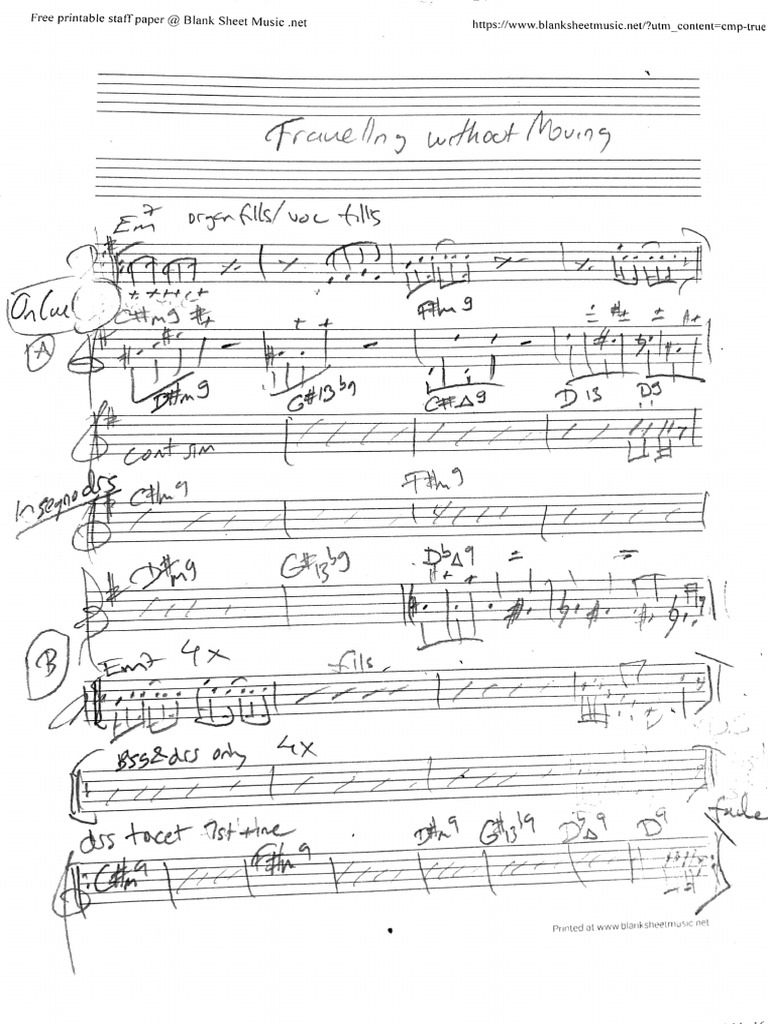 Free printable staff paper @ Blank Sheet Music .net https://www.blanksheetmusic.net/?utm_content=cmp-true
Travelling without Moving
Em7 organ fills/voc fills
On Cue
C#m9 F#m9
A
D#m9 G#13b9 C#Δ9 D13 D9
Cont sim
C#m9 F#m9
D#m9 G#13b9 DbΔ9
B
Em7 4x fills
Bss & drs only 4x
drs tacet 1st time D#m9 G#13b9 DbΔ9 D9 fade
C#m9 F#m9
Printed at www.blanksheetmusic.net